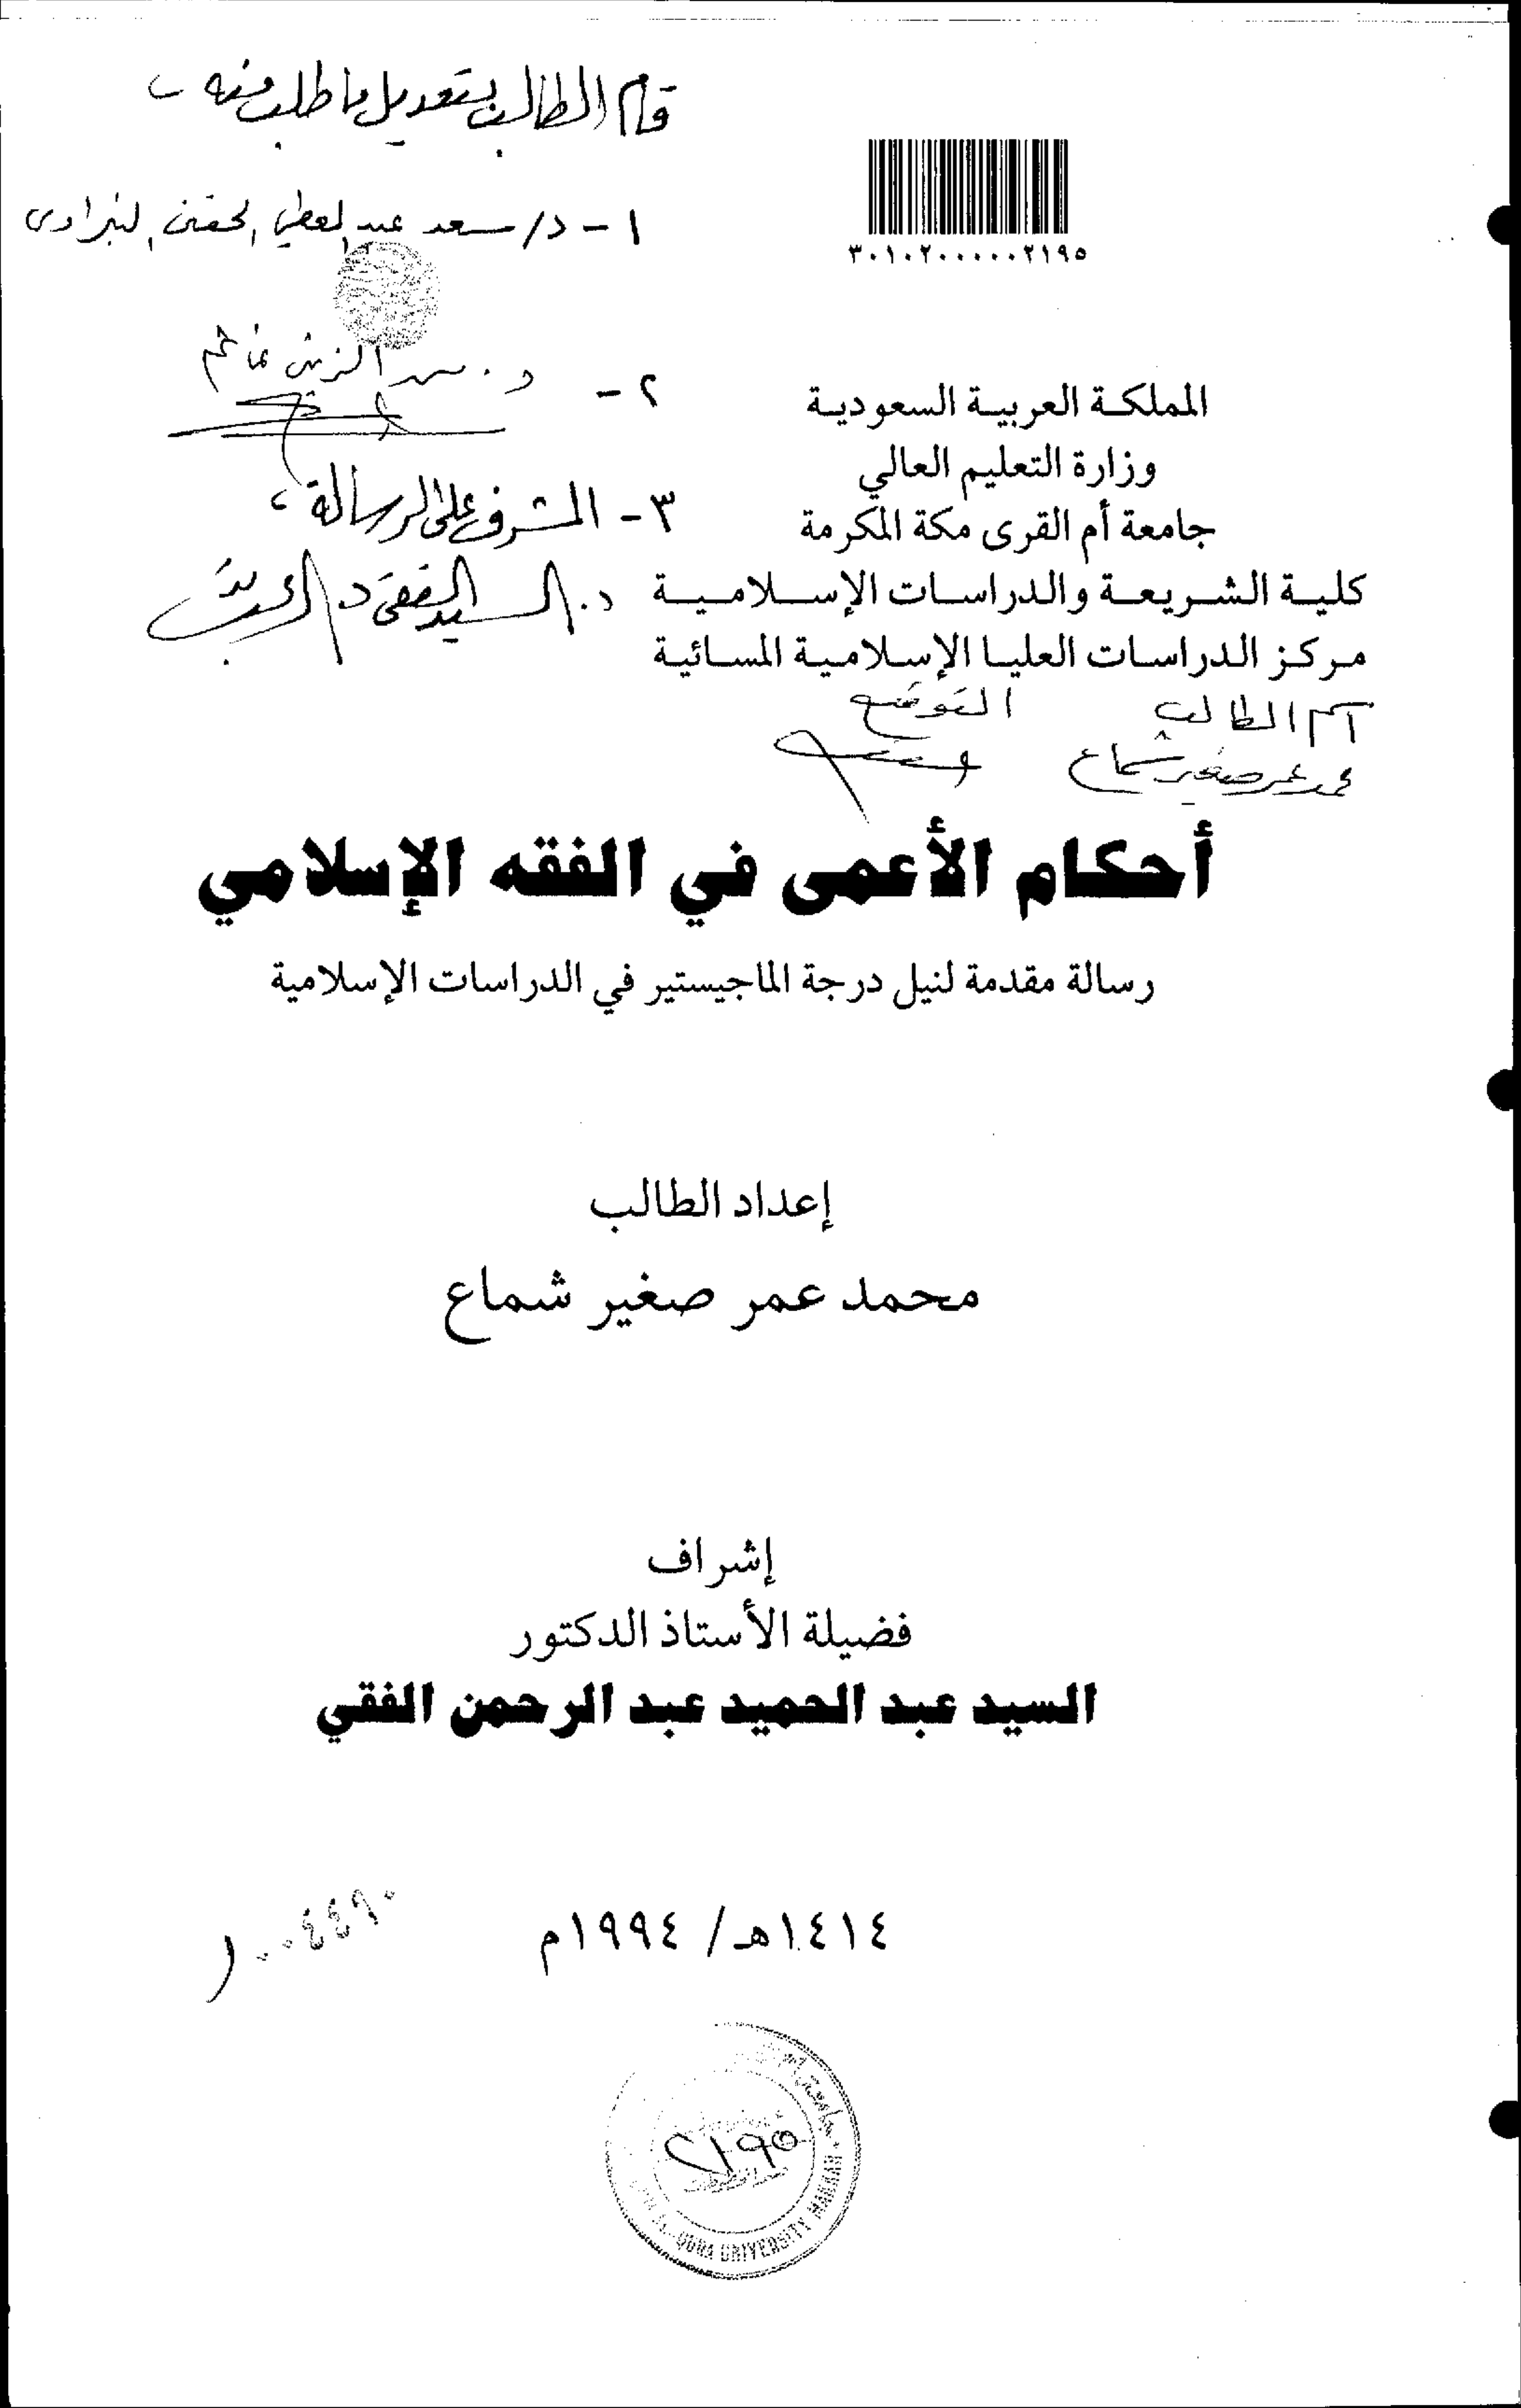 قام الطالب بتعديل ما طلب منه
٣٠١٠٢٠٠٠٠٠٠٢١٩٥
١ - د/ سعد عبد
٢ - د.
٣ - المشرف على الرسالة
د. السيد الفقي
المملكة العربية السعودية
وزارة التعليم العالي
جامعة أم القرى مكة المكرمة
كلية الشريعة والدراسات الإسلامية
مركز الدراسات العليا الإسلامية المسائية
اسم الطالب التوقيع
محمد عمر صغير شماع
أحكام الأعمى في الفقه الإسلامي
رسالة مقدمة لنيل درجة الماجيستير في الدراسات الإسلامية
إعداد الطالب
محمد عمر صغير شماع
إشراف
فضيلة الأستاذ الدكتور
السيد عبد الحميد عبد الرحمن الفقي
١٤١٤هـ / ١٩٩٤م
٢١٩٥
UNIVERSITY MAKKAH